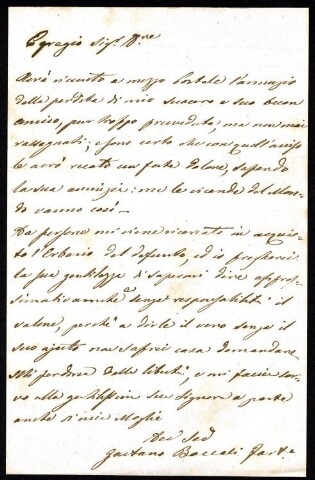 Egregio Sigr. Dre
Avrà ricevuto a mezzo Postale l'annunzio
della perdita di mio suocero e suo buon
amico, pur troppo preveduta, ma non mai
rassegnati; e sono certo che quell'avviso
le avrà recato un forte dolore, sapendo
la sua amicizia: ma le vicende del Mon-
do vanno così —
Da persone mi viene ricercato in acquis-
to l'Erbario del defunto, ed io pregherei
la sua gentilezza di sapermi dire appros-
simativamente senza responsabilità il
valore, perchè a dirle il vero senza il
suo ajuto non saprei cosa domandare.
Mi perdoni della libertà, e mi faccia ser-
vo alla gentilissima sua Signora a parte
anche di mia Moglie
Gaetano Boccati